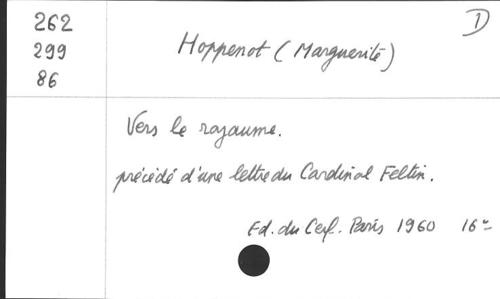 262
299
86
D
Hoppenot (Marguerite)
Vers le royaume.
précédé d'une lettre du Cardinal Feltin.
Ed. du Cerf. Paris 1960 16°